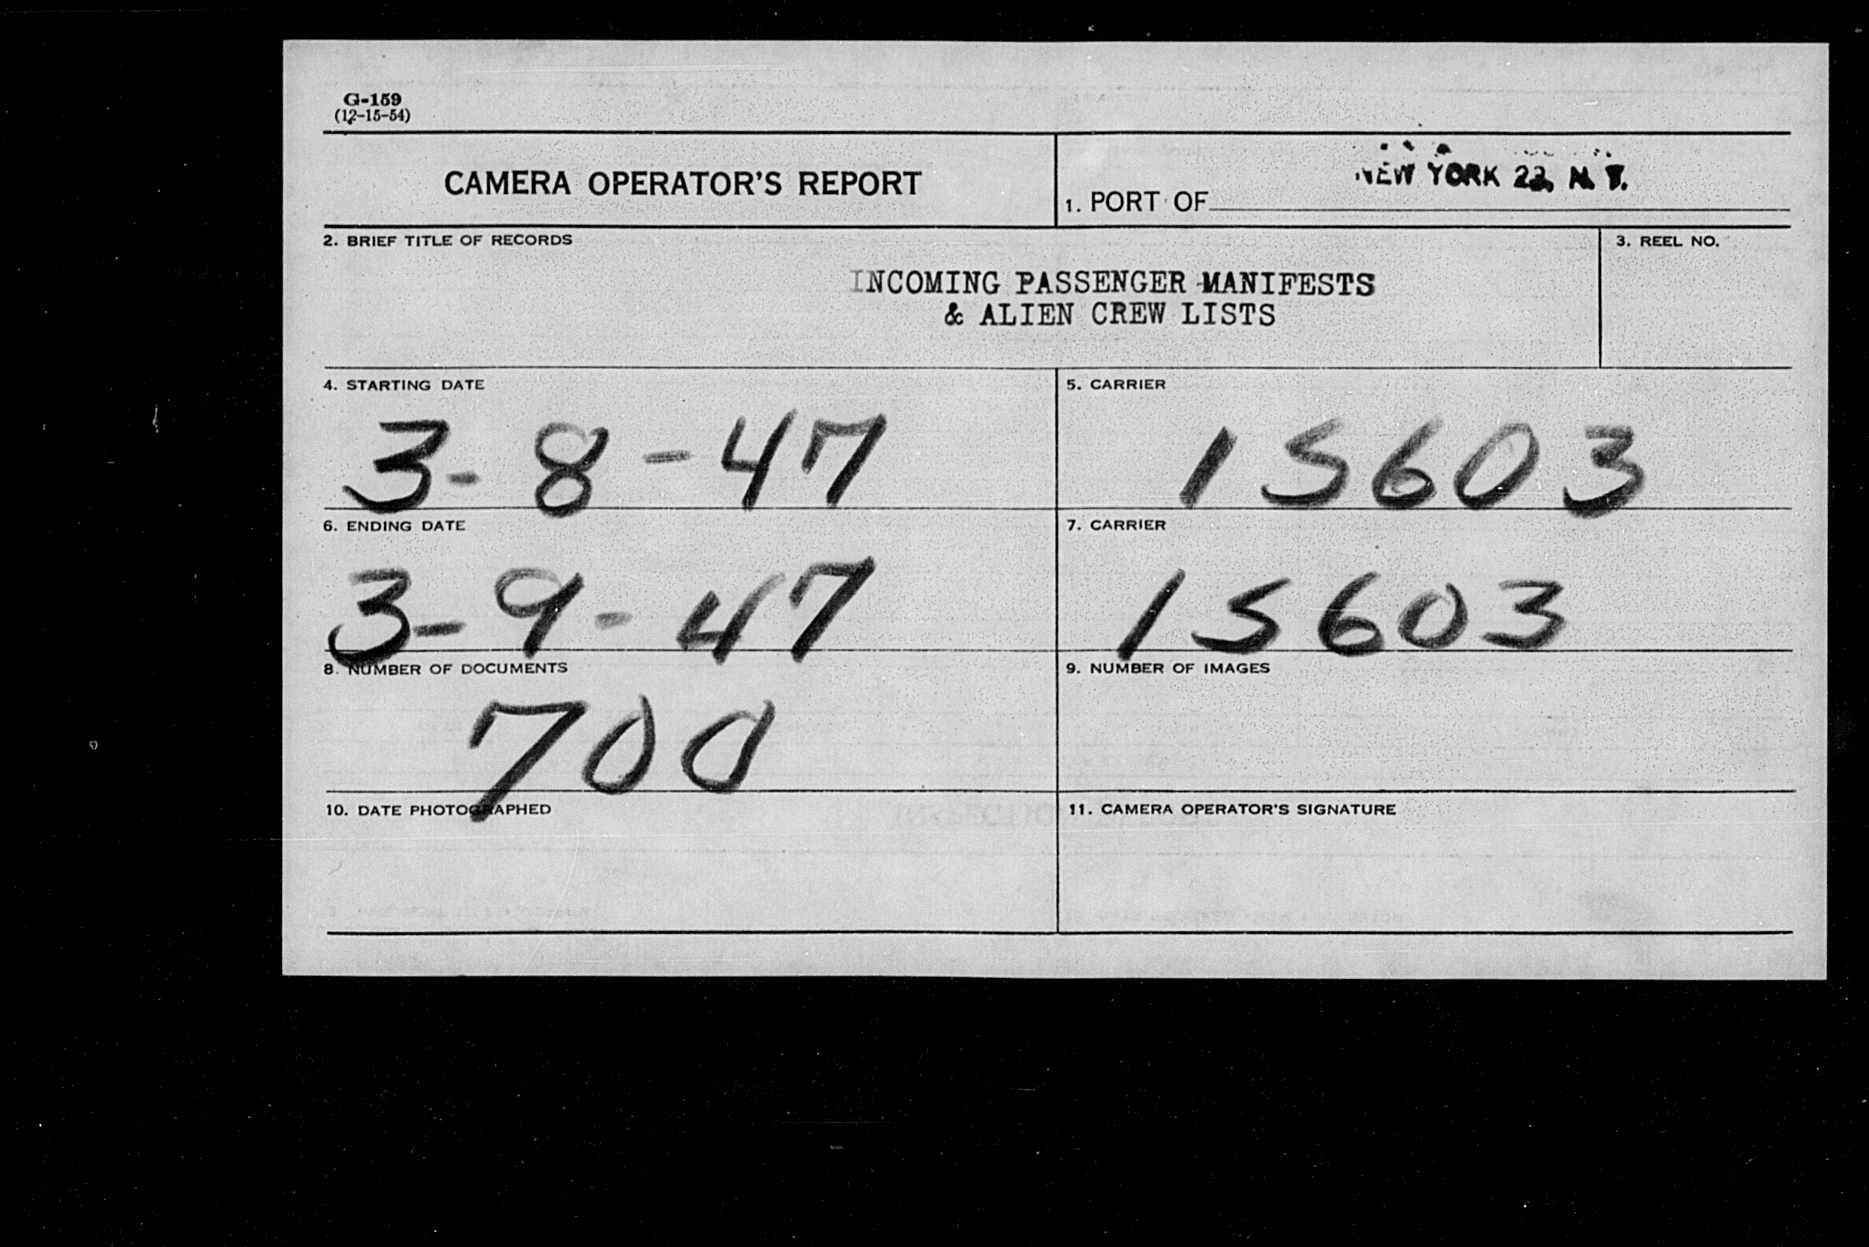 G-159
(12-15-54)
CAMERA OPERATOR'S REPORT
1. PORT OF
NEW YORK 22, N. Y.
2. BRIEF TITLE OF RECORDS
INCOMING PASSENGER MANIFESTS
& ALIEN CREW LISTS
3. REEL NO.
4. STARTING DATE
3-8-47
5. CARRIER
15603
6. ENDING DATE
3-9-47
7. CARRIER
15603
8. NUMBER OF DOCUMENTS
700
9. NUMBER OF IMAGES
10. DATE PHOTOGRAPHED
11. CAMERA OPERATOR'S SIGNATURE